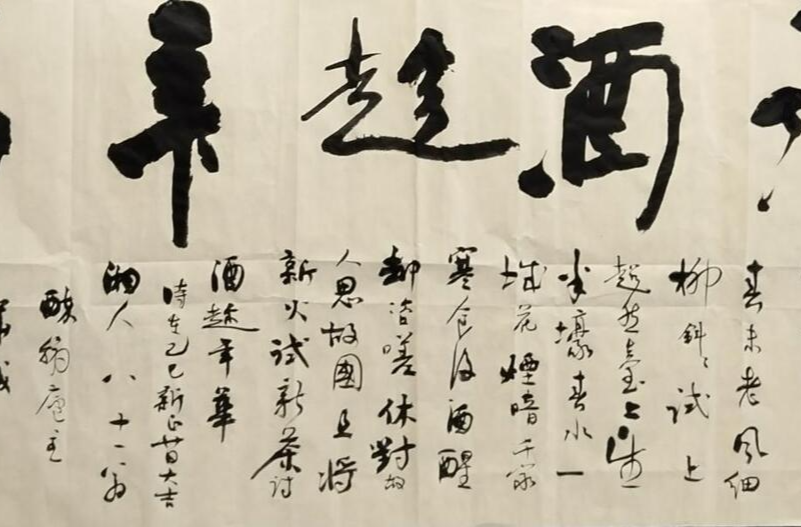 酒趁年
春未老風細
柳斜〻試上
超然臺上
半壕春水一
城花煙暗千家
寒食後酒醒
却咨嗟休對故
人思故國且將
新火試新茶詩
酒趁年華
時在乙巳新正大吉
湘人八十一翁
廬主